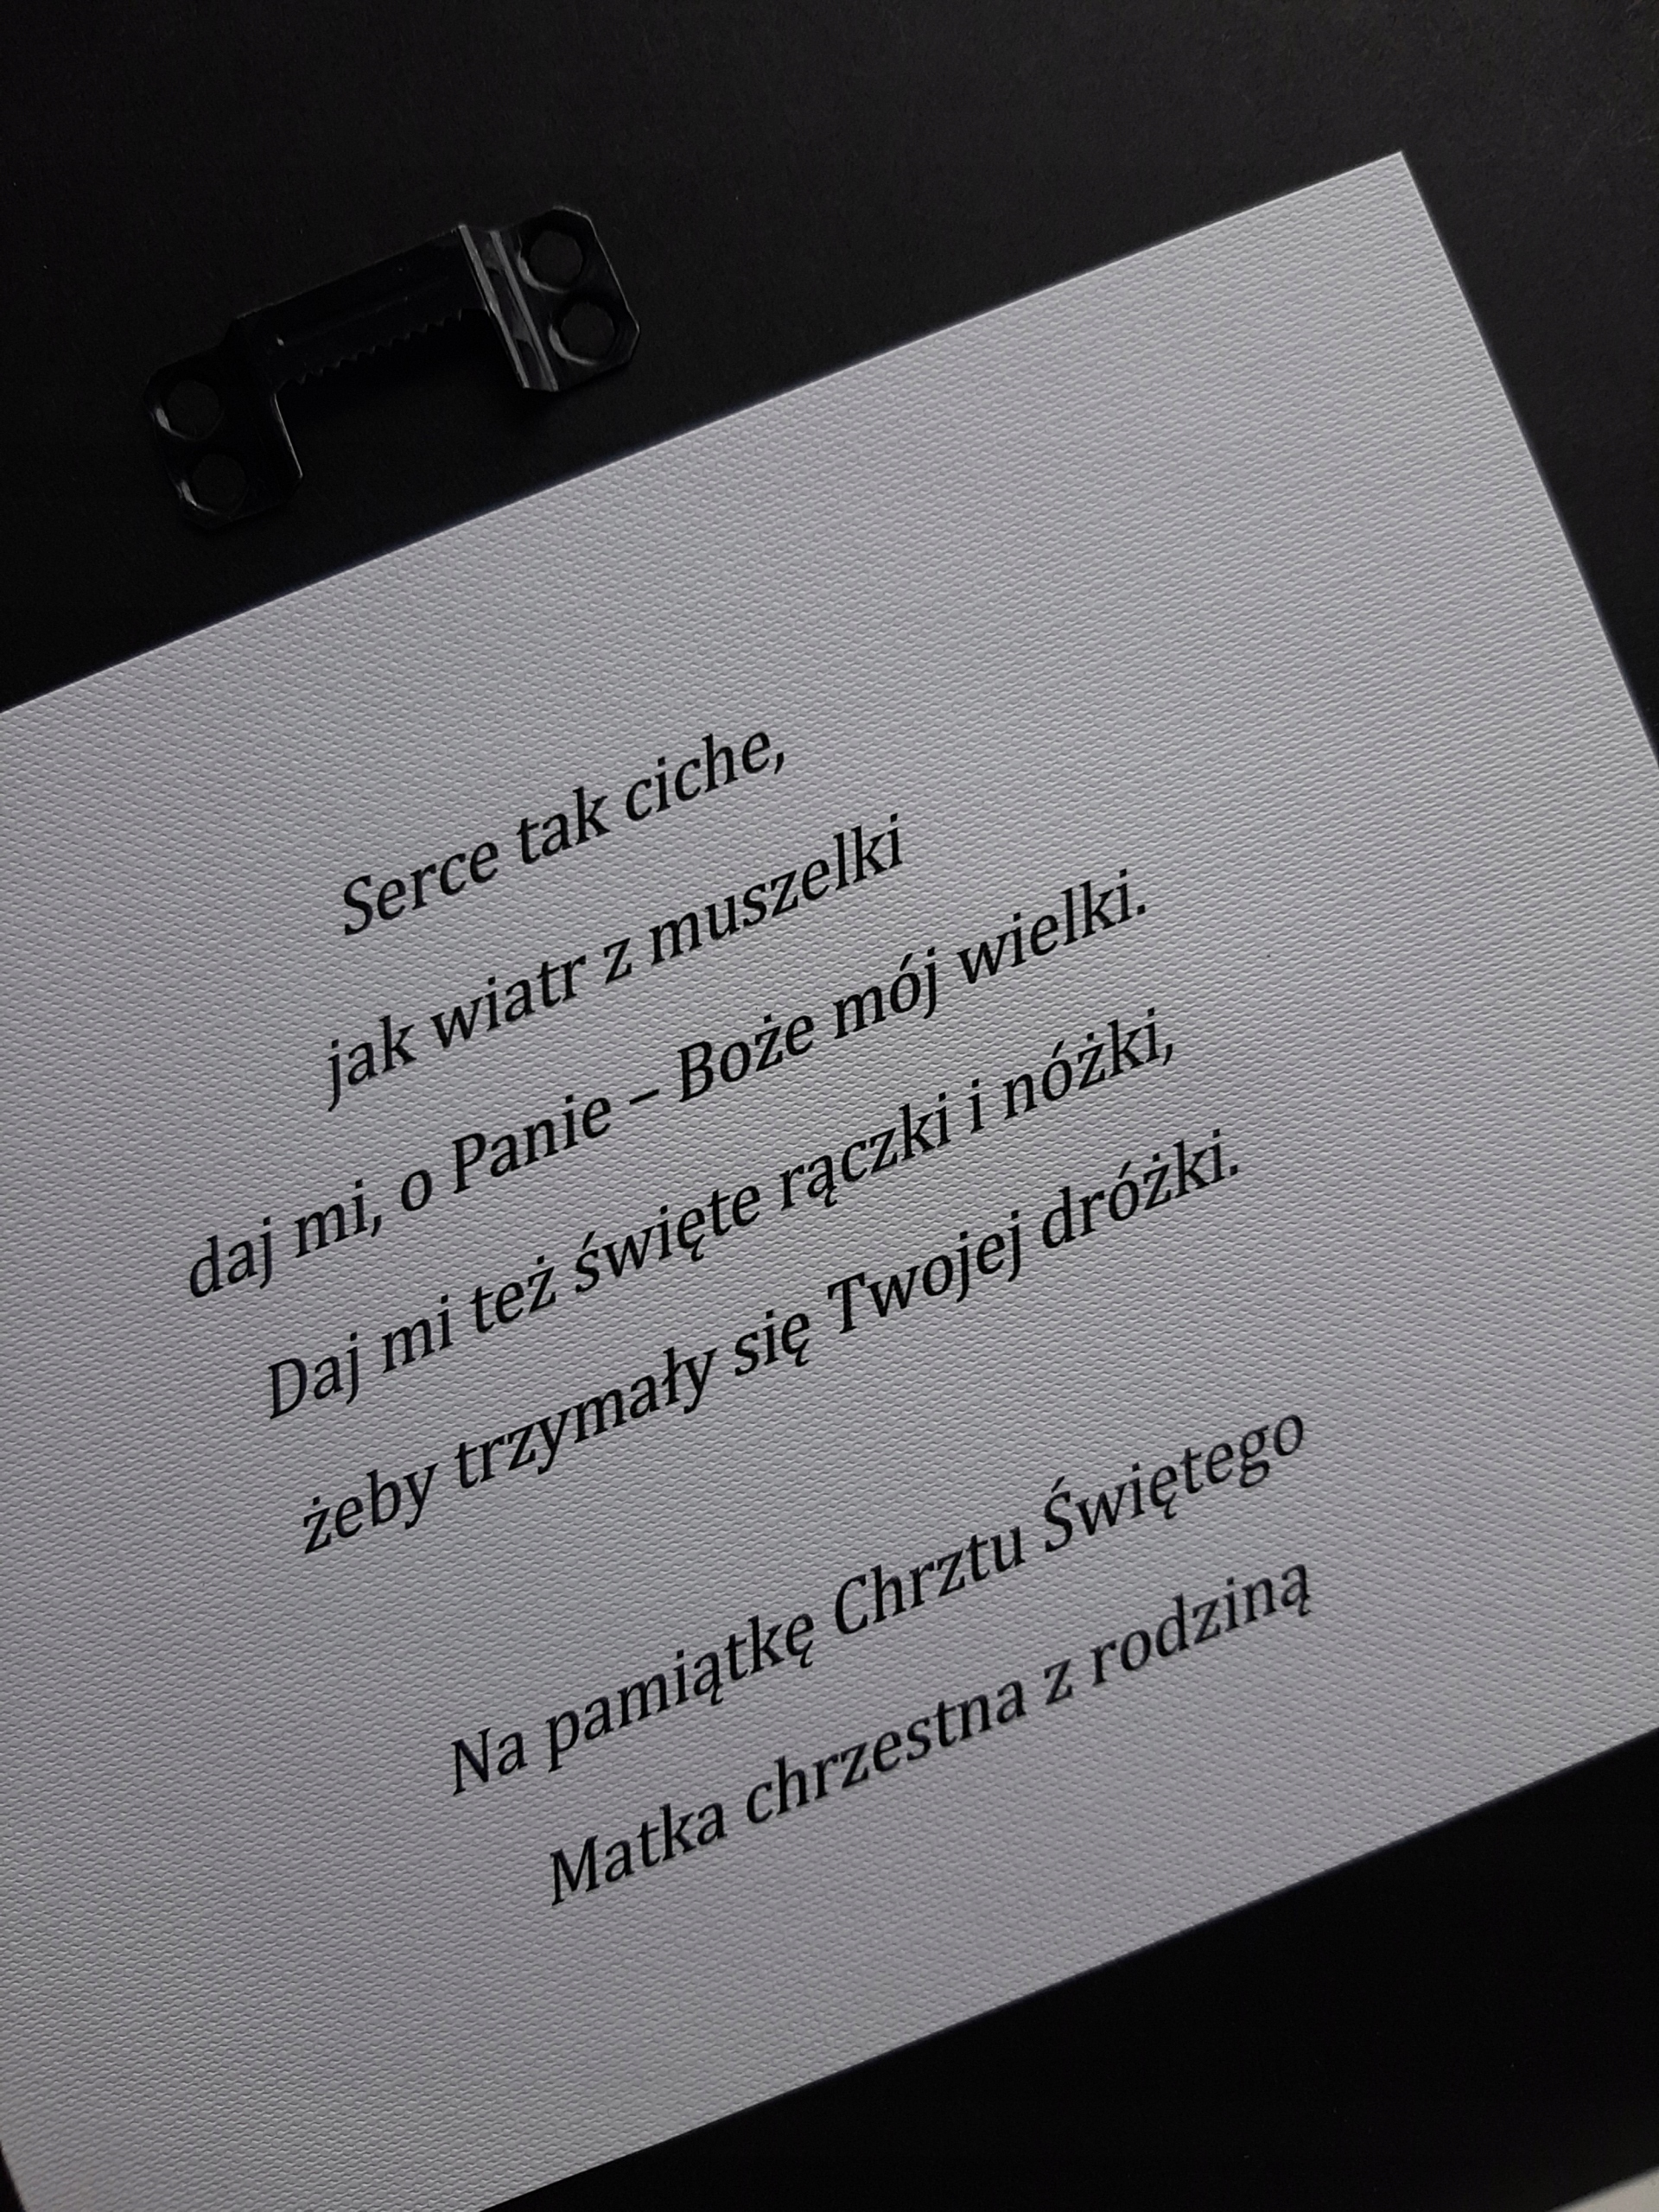 Serce tak ciche,
jak wiatr z muszelki
daj mi, o Panie – Boże mój wielki.
Daj mi też święte rączki i nóżki,
żeby trzymały się Twojej dróżki.
Na pamiątkę Chrztu Świętego
Matka chrzestna z rodziną